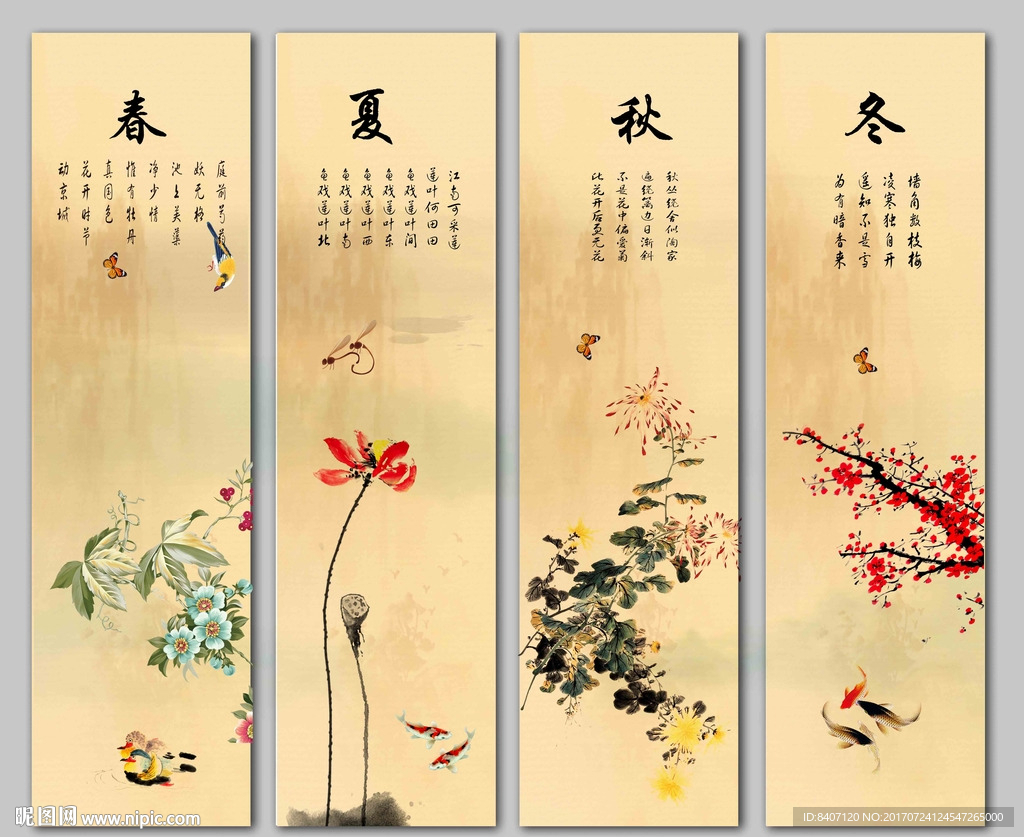 春
庭前芍药
妖无格
池上芙蕖
净少情
惟有牡丹
真国色
花开时节
动京城
夏
江南可采莲
莲叶何田田
鱼戏莲叶间
鱼戏莲叶东
鱼戏莲叶西
鱼戏莲叶南
鱼戏莲叶北
秋
秋丛绕舍似陶家
遍绕篱边日渐斜
不是花中偏爱菊
此花开后更无花
冬
墙角数枝梅
凌寒独自开
遥知不是雪
为有暗香来
昵图网 www.nipic.com
ID:8407120 NO:20170724124547265000